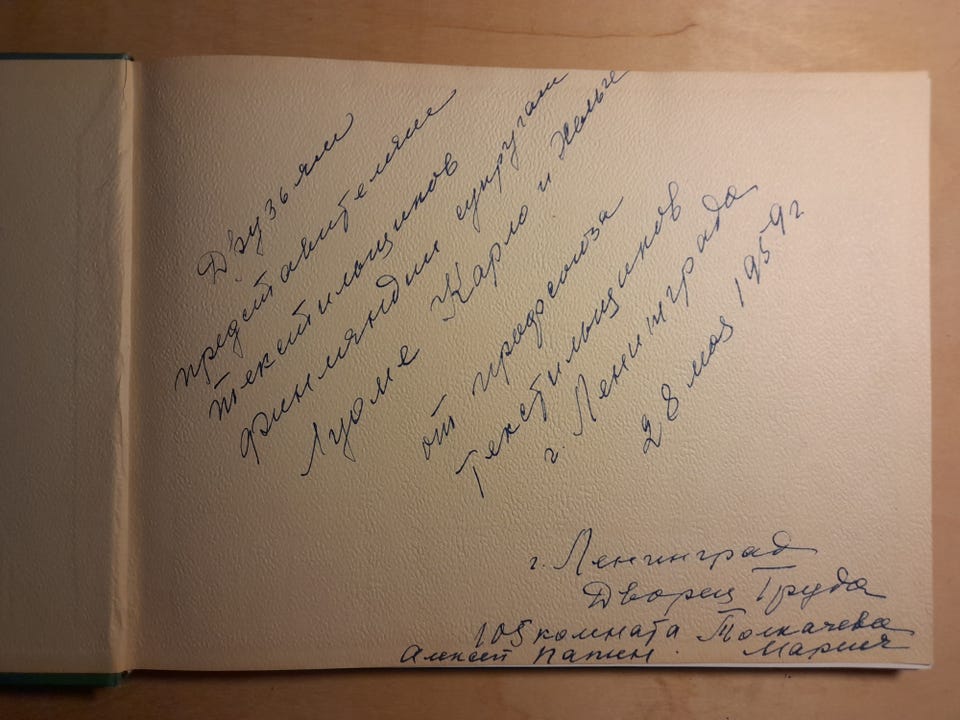 Друзьям
представителям
текстильщиков
Финляндии супругам
Луоме Карло и Хельге
от профсоюза
Текстильщиков
г. Ленинграда
28 мая 1959 г
г. Ленинград
Дворец Труда
105 комната Толкачева
Алексей Мария